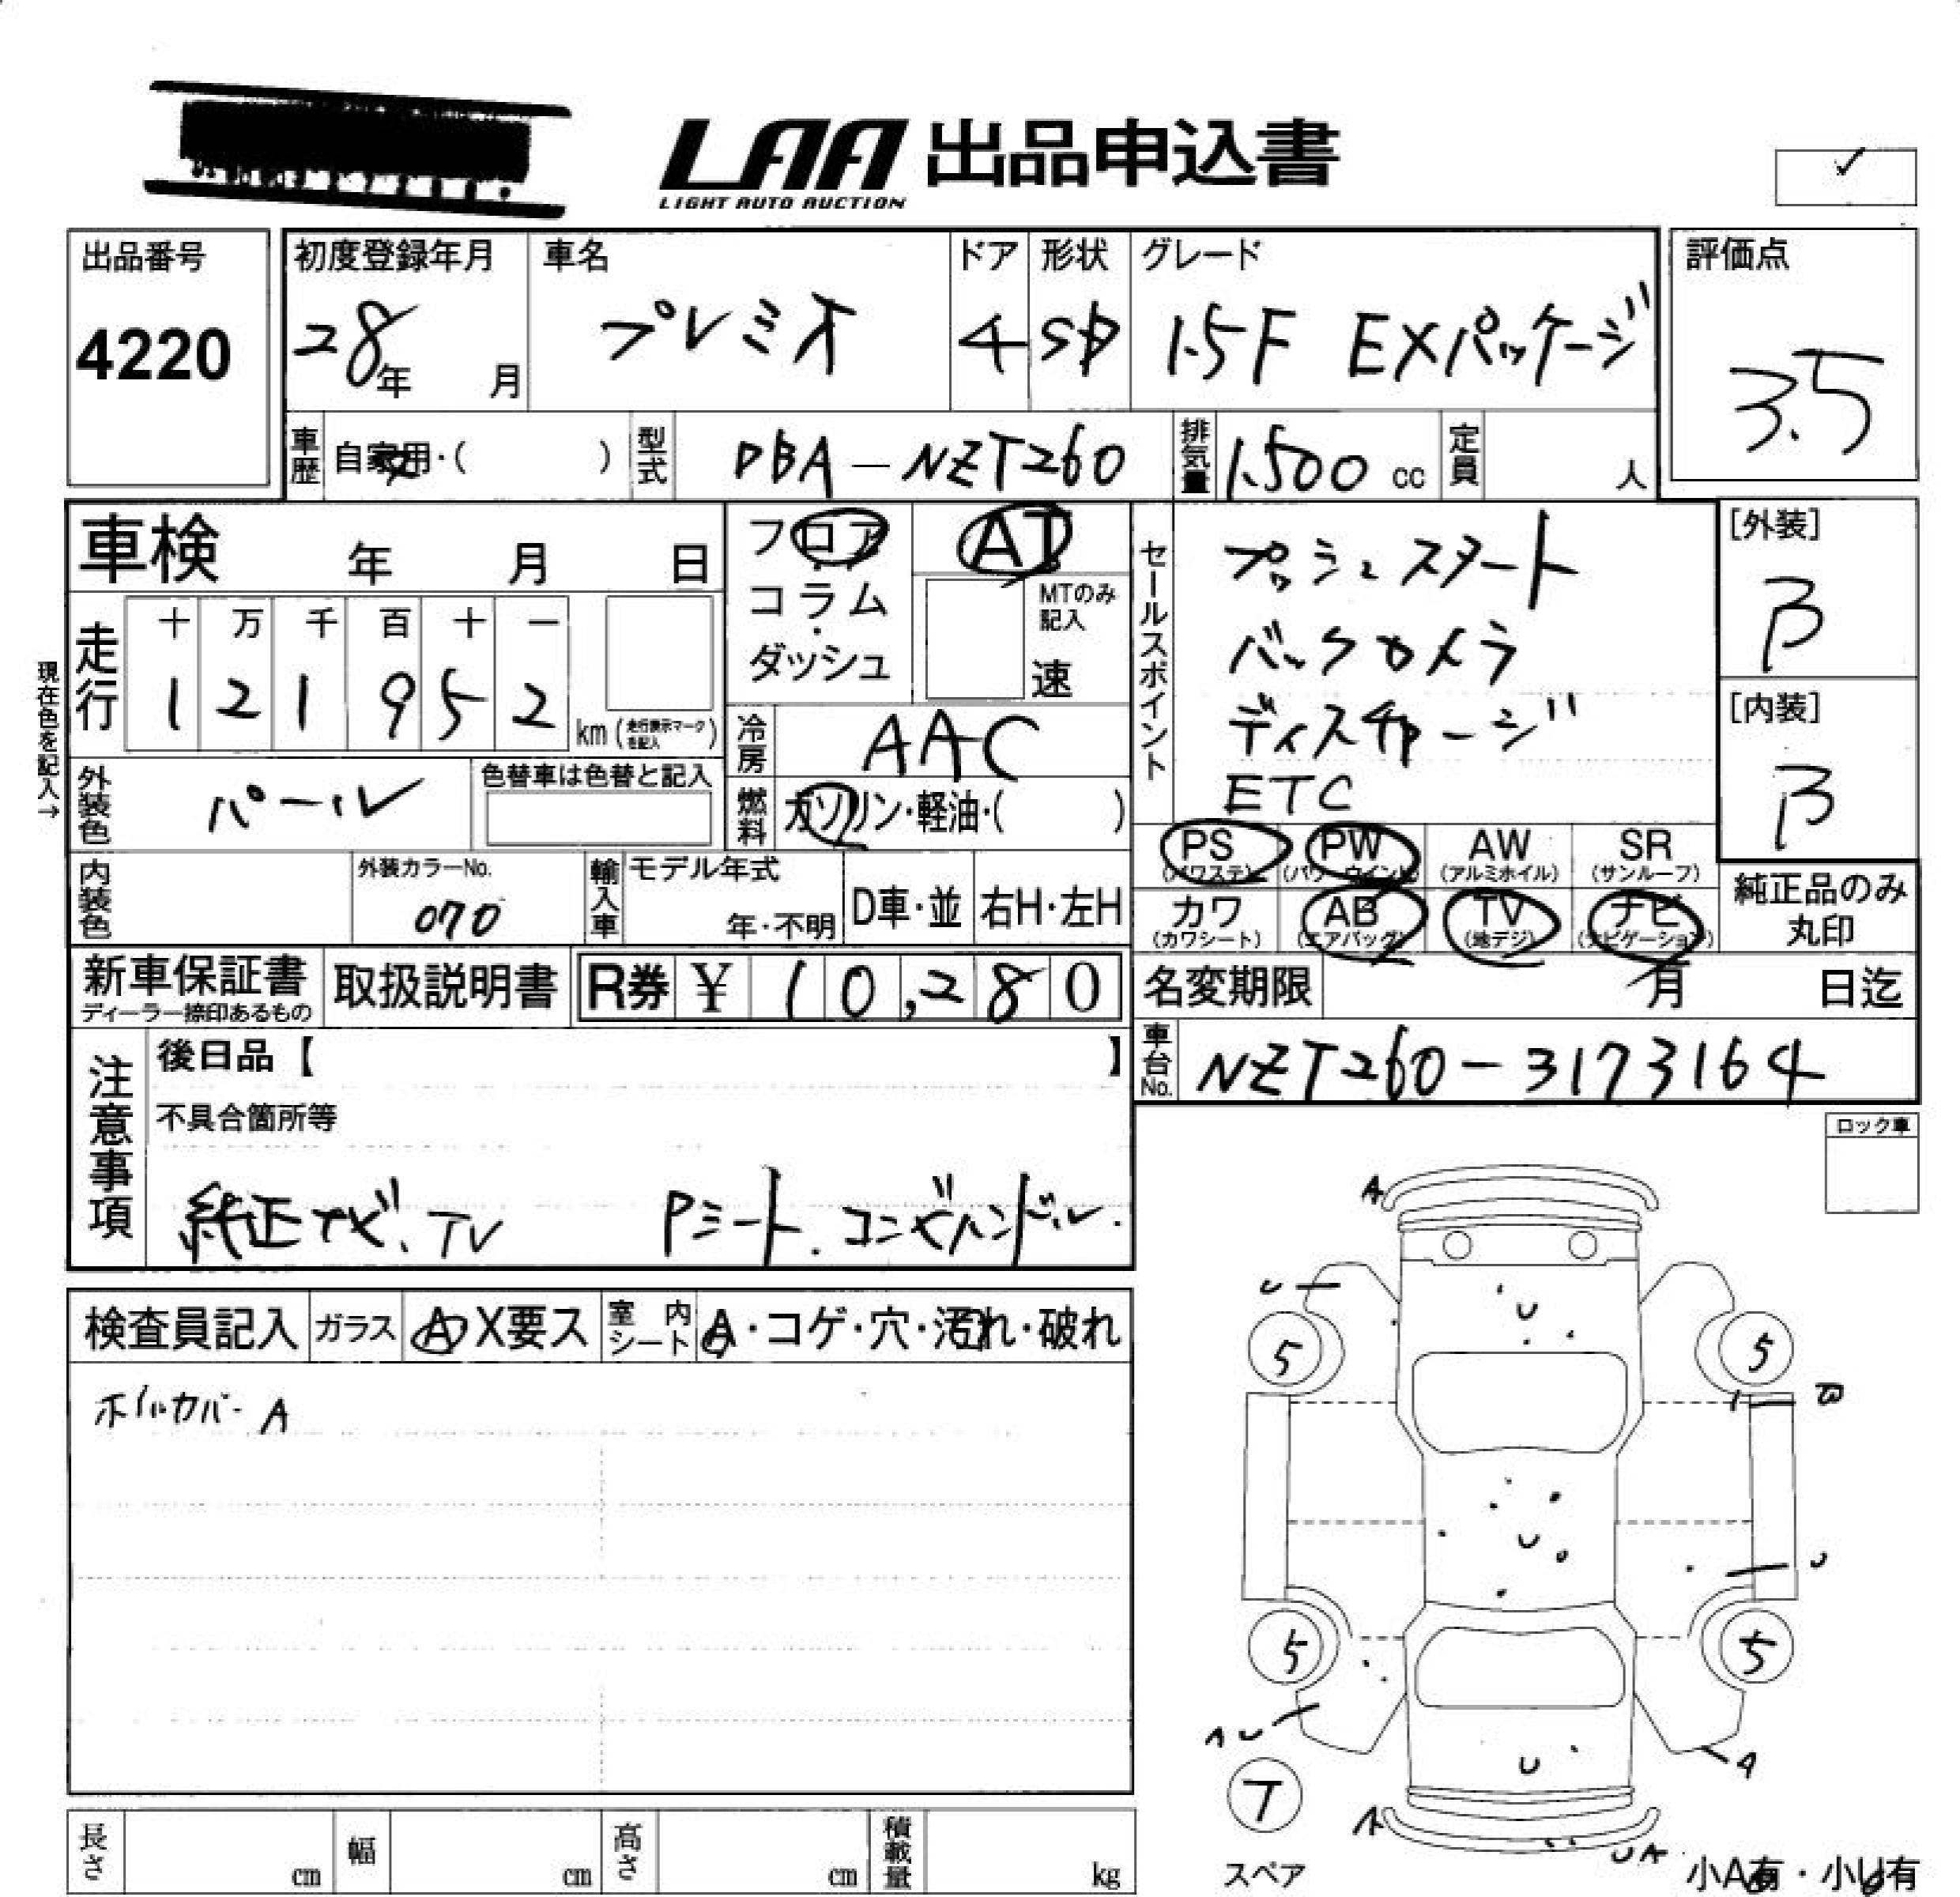 LAA 出品申込書
LIGHT AUTO AUCTION
出品番号
4220
初度登録年月
28年 月
車名
プレミオ
ドア
4
形状
SD
グレード
1.5F EXパッケージ
評価点
3.5
車歴 自家用・( )
型式 DBA-NZT260
排気量 1.500 cc
定員 人
車検 年 月 日
フロア・コラム・ダッシュ
AT
MTのみ記入
速
セールスポイント
プッシュスタート
バックカメラ
ディスチャージ
ETC
[外装]
B
[内装]
B
現在色を記入→
走行 十万千百十一
121952 km(走行表示マークを記入)
冷房 AAC
燃料 ガソリン・軽油・( )
外装色 パール
色替車は色替と記入
内装色
外装カラーNo.
070
輸入車 モデル年式
年・不明
D車・並
右H・左H
PS (パワステ)
PW (パワーウインド)
AW (アルミホイル)
SR (サンルーフ)
カワ (カワシート)
AB (エアバッグ)
TV (地デジ)
ナビ (ナビゲーション)
純正品のみ
丸印
新車保証書
ディーラー捺印あるもの
取扱説明書
R券 ¥ 10,280
名変期限 月 日迄
車台No. NZT260-3173164
注意事項
後日品【 】
不具合箇所等
純正ナビ、TV Pシート.コンビハンドル.
ロック車
検査員記入
ガラス A X要ス
室内シート A・コゲ・穴・汚れ・破れ
ホイルカバーA
A
U
U
5
5
U
U
5
5
A U
U
A
T
A
U A
スペア
小A有・小U有
長さ cm
幅 cm
高さ cm
積載量 kg